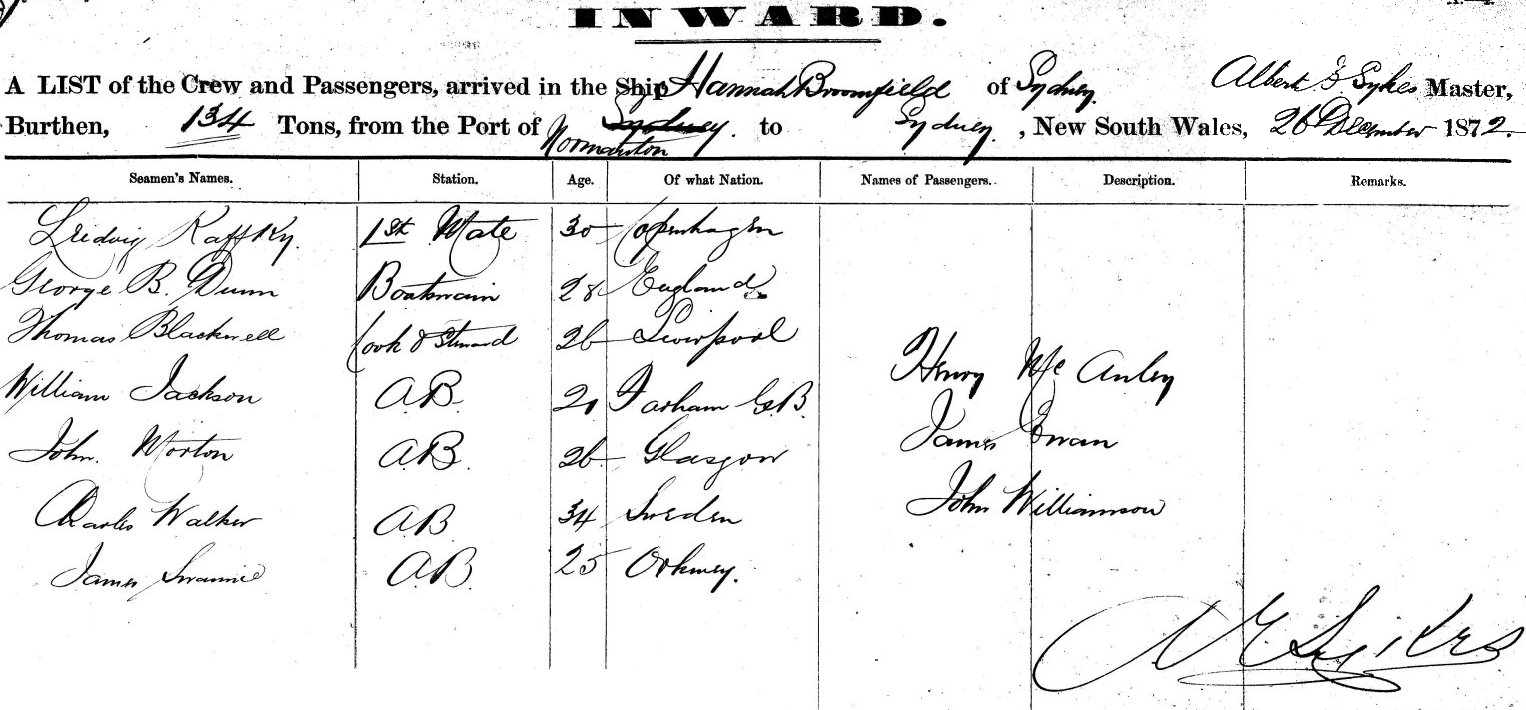 INWARD.
A LIST of the Crew and Passengers, arrived in the Ship Hannah Broomfield of Sydney. Albert Sykes Master,
Burthen, 134 Tons, from the Port of Sydney. to Sydney, New South Wales, 26 December 1872.
Normanton
Seamen's Names. Station. Age. Of what Nation. Names of Passengers. Description. Remarks.
Ludvig Kaffky. 1st Mate 30 Copenhagen
George B. Dunn Boatswain 28 England
Thomas Blackwell Cook & Steward 26 Liverpool
Henry McAuley
William Jackson A.B. Farham G.B.
James Ewan
John Morton A.B. 26 Glasgow
John Williamson
Charles Walker A.B. 34 Sweden
James Swannie A.B. 25 Orkney.
Sykes